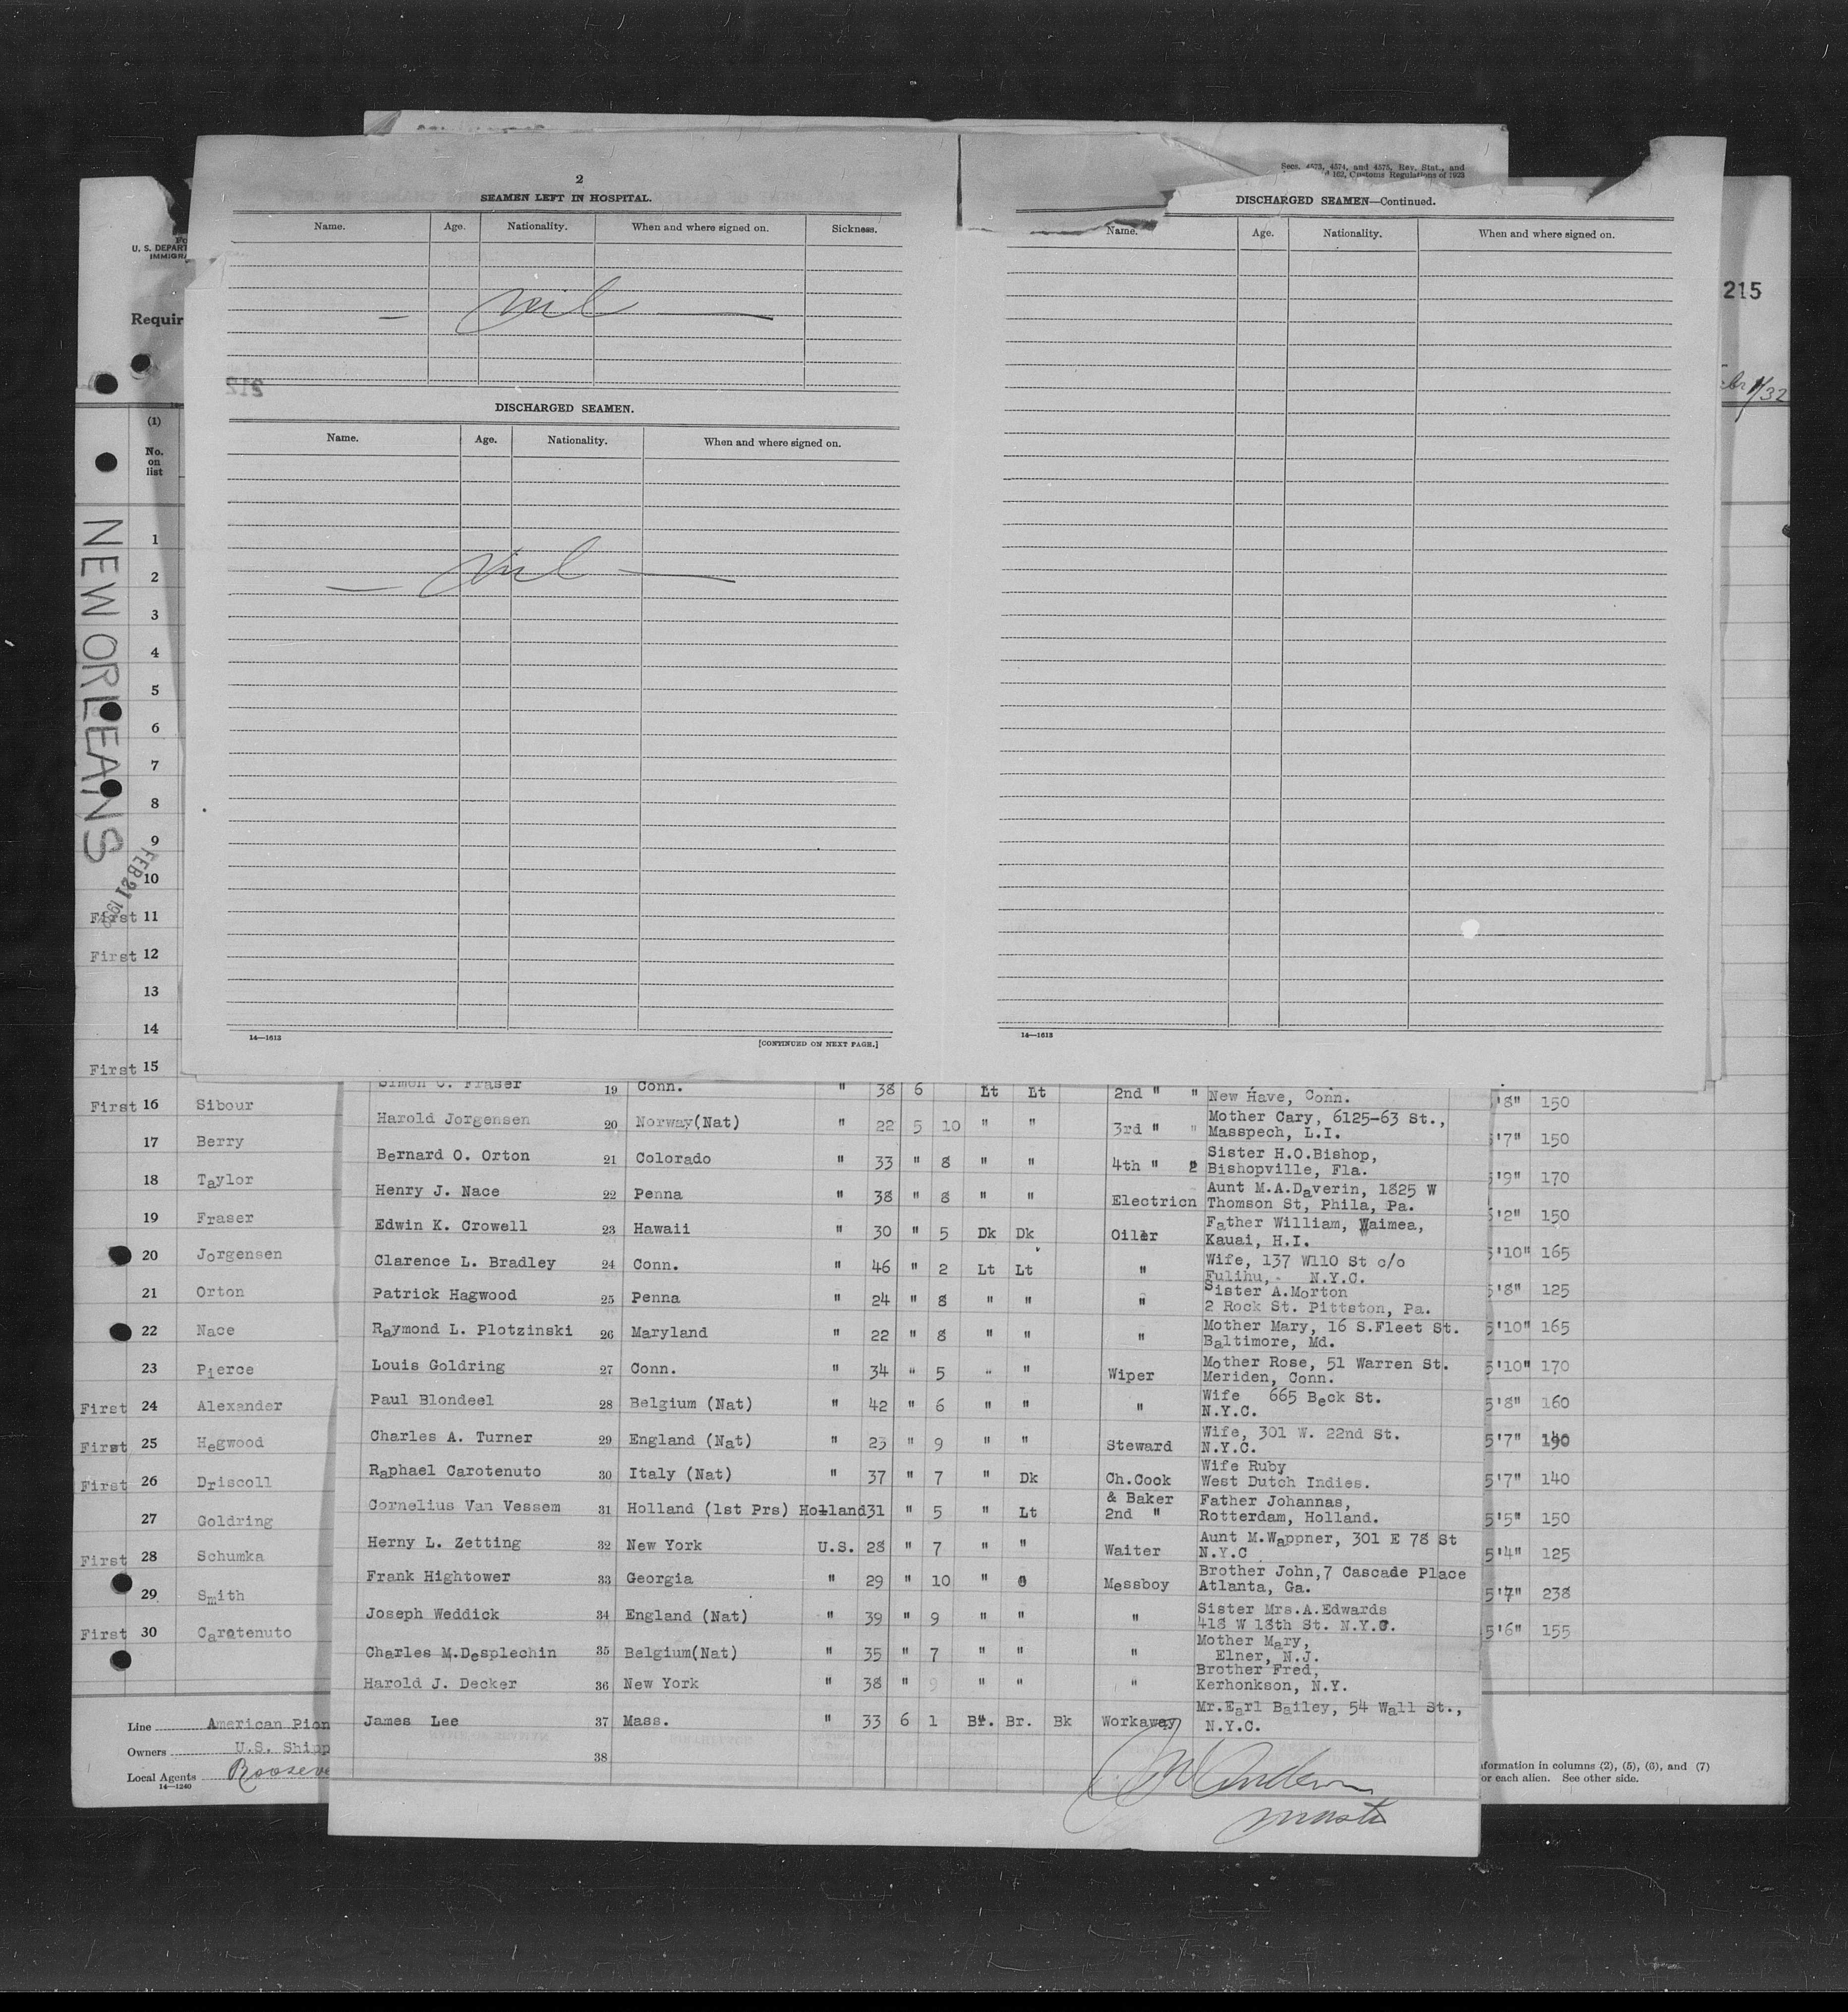 Secs. 4573, 4574, and 4575, Rev. Stat., and
162, Customs Regulations of 1923
2
SEAMEN LEFT IN HOSPITAL.
Name. Age. Nationality. When and where signed on. Sickness.
— nil —
212
DISCHARGED SEAMEN.
Name. Age. Nationality. When and where signed on.
— nil —
14—1613
[CONTINUED ON NEXT PAGE.]
DISCHARGED SEAMEN—Continued.
Name. Age. Nationality. When and where signed on.
14—1613
U. S. DEPART
IMMIGRA
Requir
215
(1)
No.
on
list
NEW ORLEANS
FEB 21
1
2
3
4
5
6
7
8
9
10
First 11
First 12
13
14
First 15
First 16 Sibour
17 Berry
18 Taylor
19 Fraser
20 Jorgensen
21 Orton
22 Nace
23 Pierce
First 24 Alexander
First 25 Hegwood
First 26 Driscoll
27 Goldring
First 28 Schumka
29 Smith
First 30 Carotenuto
Line American Pion
Owners U.S. Shipp
Local Agents Rooseve
14—1240
Simon C. Fraser 19 Conn. " 38 6 Lt Lt 2nd " " New Have, Conn.
Harold Jorgensen 20 Norway(Nat) " 22 5 10 " " 3rd " " Mother Cary, 6125-63 St.,
Masspech, L.I.
Bernard O. Orton 21 Colorado " 33 " 8 " " 4th " Sister H.O.Bishop,
Bishopville, Fla.
Henry J. Nace 22 Penna " 38 " 8 " " Electricn Aunt M.A.Daverin, 1825 W
Thomson St, Phila, Pa.
Edwin K. Crowell 23 Hawaii " 30 " 5 Dk Dk Oiler Father William, Waimea,
Kauai, H.I.
Clarence L. Bradley 24 Conn. " 46 " 2 Lt Lt " Wife, 137 W110 St c/o
Fulihu, - N.Y.C.
Patrick Hagwood 25 Penna " 24 " 8 " " " Sister A.Morton
2 Rock St. Pittston, Pa.
Raymond L. Plotzinski 26 Maryland " 22 " 8 " " " Mother Mary, 16 S.Fleet St.
Baltimore, Md.
Louis Goldring 27 Conn. " 34 " 5 " " Wiper Mother Rose, 51 Warren St.
Meriden, Conn.
Paul Blondeel 28 Belgium (Nat) " 42 " 6 " " " Wife 665 Beck St.
N.Y.C.
Charles A. Turner 29 England (Nat) " 23 " 9 " " Steward Wife, 301 W. 22nd St.
N.Y.C.
Raphael Carotenuto 30 Italy (Nat) " 37 " 7 " Dk Ch.Cook Wife Ruby
West Dutch Indies.
Cornelius Van Vessem 31 Holland (1st Prs) Holland 31 " 5 " Lt & Baker
2nd " Father Johannas,
Rotterdam, Holland.
Herny L. Zetting 32 New York U.S. 28 " 7 " " Waiter Aunt M.Wappner, 301 E 78 St
N.Y.C
Frank Hightower 33 Georgia " 29 " 10 " Messboy Brother John,7 Cascade Place
Atlanta, Ga.
Joseph Weddick 34 England (Nat) " 39 " 9 " " " Sister Mrs.A.Edwards
418 W 18th St. N.Y.C.
Charles M.Desplechin 35 Belgium(Nat) " 35 " 7 " " " Mother Mary,
Elner, N.J.
Harold J. Decker 36 New York " 38 " 9 " " " Brother Fred,
Kerhonkson, N.Y.
James Lee 37 Mass. " 33 6 1 Br. Br. Bk Workaway Mr.Earl Bailey, 54 Wall St.,
N.Y.C.
38
5'8" 150
5'7" 150
5'9" 170
5'2" 150
5'10" 165
5'8" 125
5'10" 165
5'10" 170
5'8" 160
5'7"
5'7" 140
5'5" 150
5'4" 125
5'7" 238
5'6" 155
formation in columns (2), (5), (6), and (7)
or each alien. See other side.